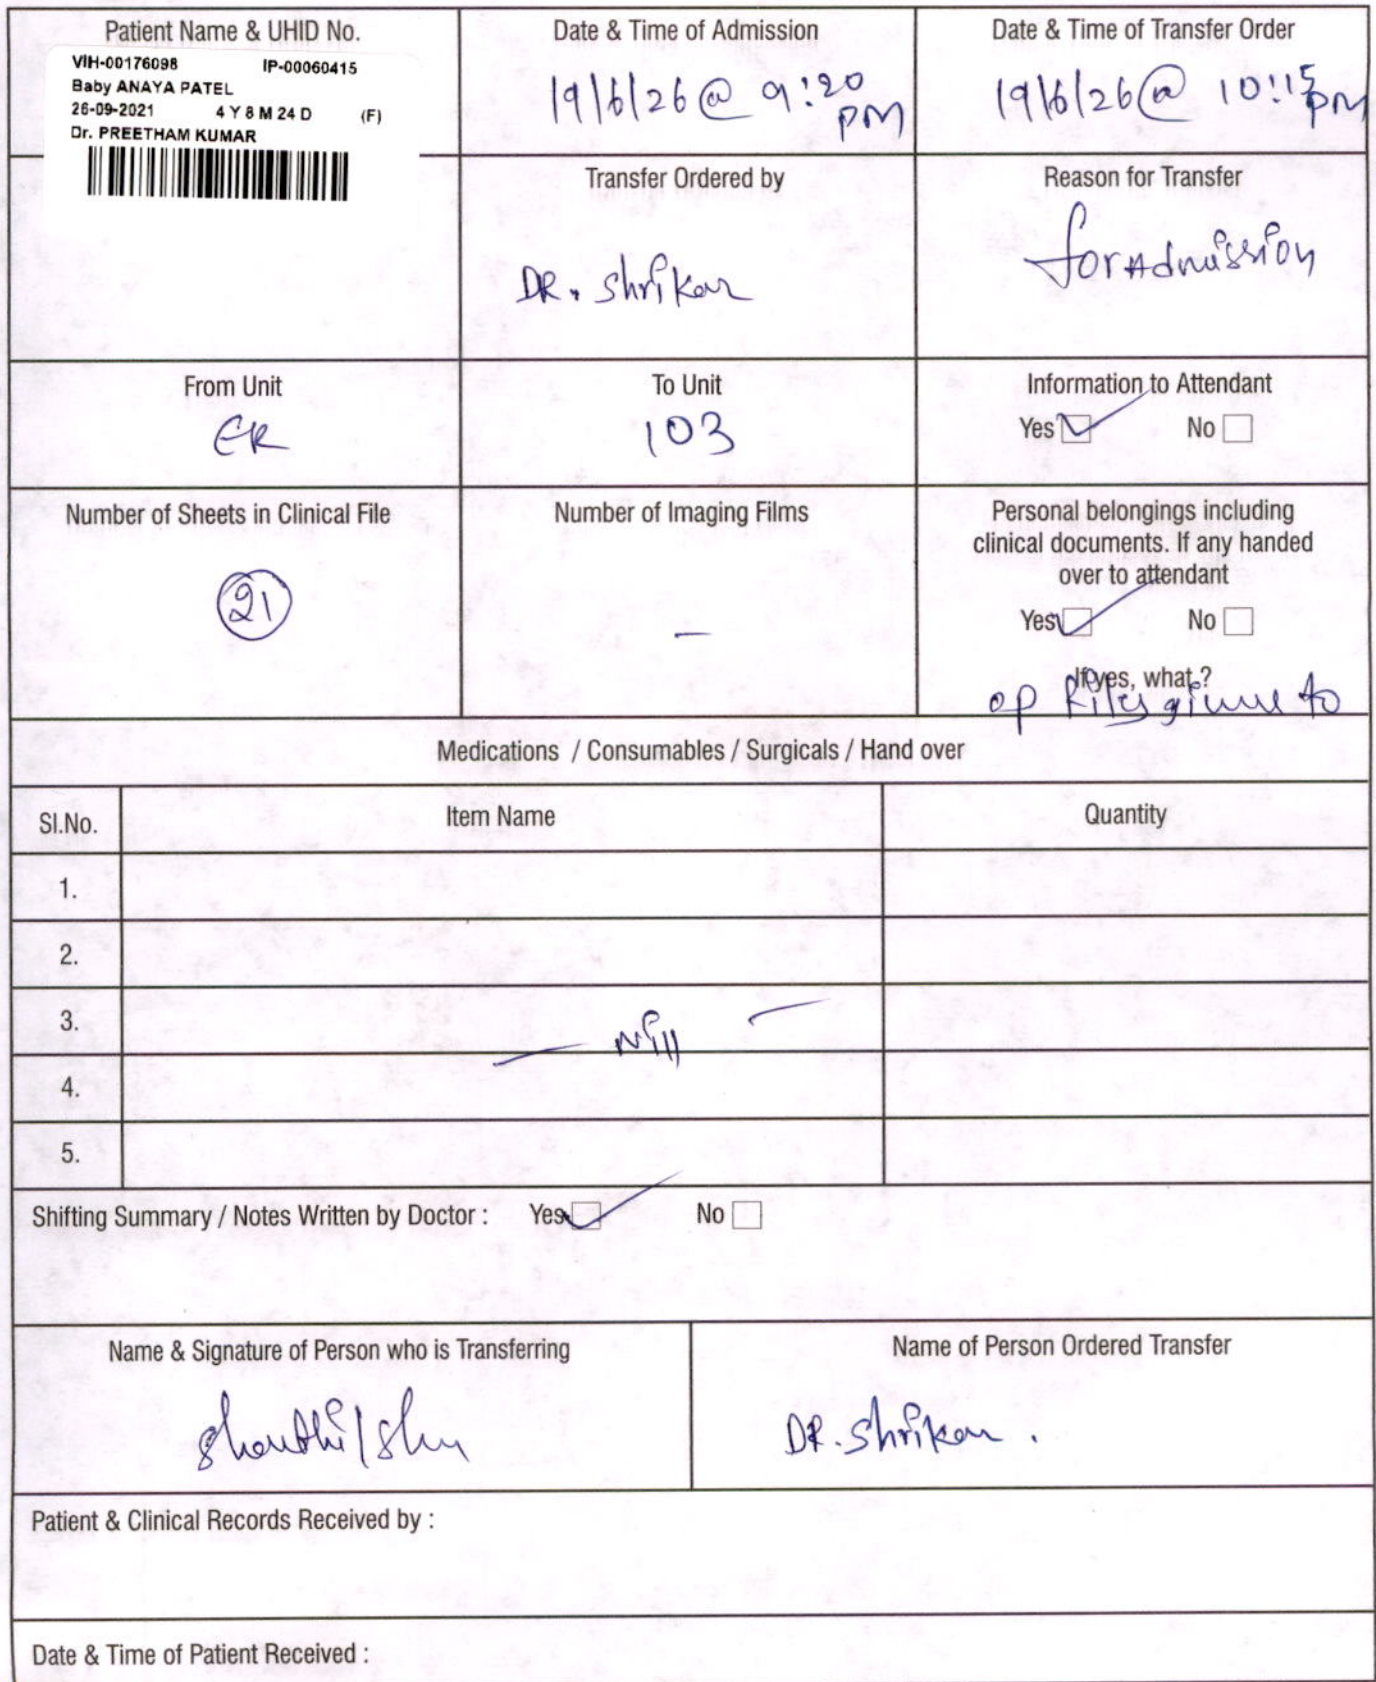 Patient Name & UHID No.
VIH-00176098 IP-00060415
Baby ANAYA PATEL
26-09-2021 4 Y 8 M 24 D (F)
Dr. PREETHAM KUMAR
Date & Time of Admission
19/6/26 @ 9:20 PM
Date & Time of Transfer Order
19/6/26 @ 10:15 PM
Transfer Ordered by
DR. Shrikar
Reason for Transfer
for Admission
From Unit
ER
To Unit
103
Information to Attendant
Yes No
Number of Sheets in Clinical File
21
Number of Imaging Films
—
Personal belongings including
clinical documents. If any handed
over to attendant
Yes No
If yes, what ?
op files to
Medications / Consumables / Surgicals / Hand over
Sl.No. Item Name Quantity
1.
2.
3.
— Nill —
4.
5.
Shifting Summary / Notes Written by Doctor : Yes No
Name & Signature of Person who is Transferring
Shanthi /
Name of Person Ordered Transfer
DR. Shrikar .
Patient & Clinical Records Received by :
Date & Time of Patient Received :